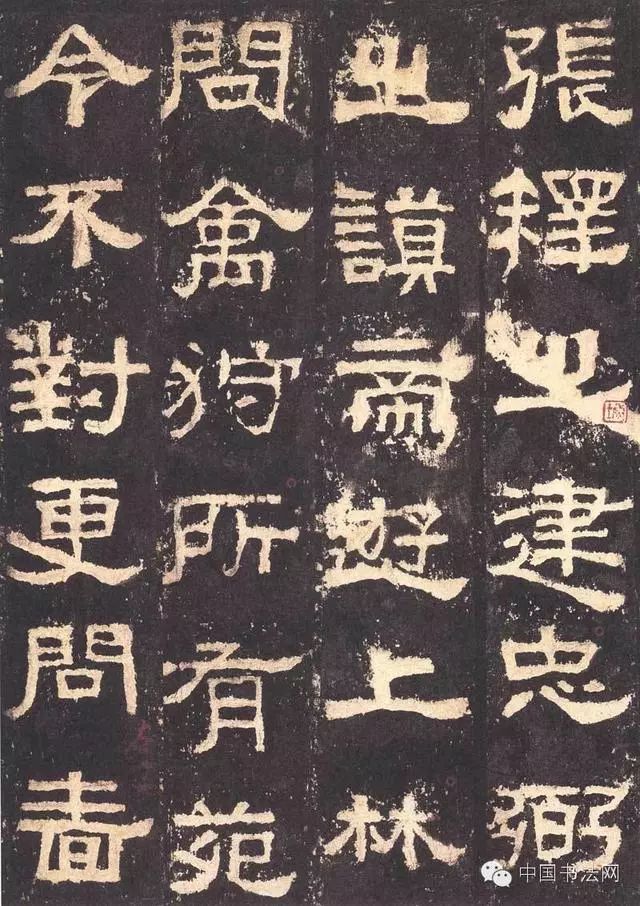 張釋之建忠弼
之謨帝遊上林
問禽狩所有苑
令不對更問嗇
中国书法网